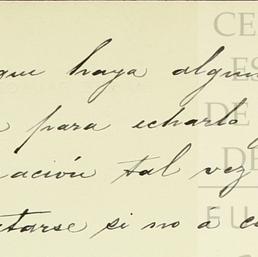 que haya algun
para echarlo
ación tal vez
tarse si no á c
CE
ES
DE
DE
FU